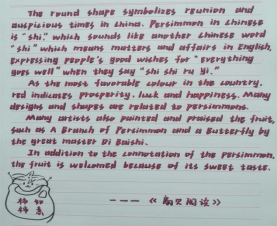 The round shape symbolizes reunion and
auspicious times in China. Persimmon in Chinese
is "shi," which sounds like another Chinese word
"shi" which means matters and affairs in English,
expressing people's good wishes for "everything
goes well" when they say "shi shi ru yi."
As the most favorable colour in the country,
red indicates prosperity, luck and happiness. Many
designs and shapes are related to persimmons.
Many artists also painted and praised the fruit,
such as A Branch of Persimmon and a Butterfly by
the great master Qi Baishi.
In addition to the connotation of the persimmon,
the fruit is welcomed because of its sweet taste.
---《翻贝阅读》
柿 如
柿 意